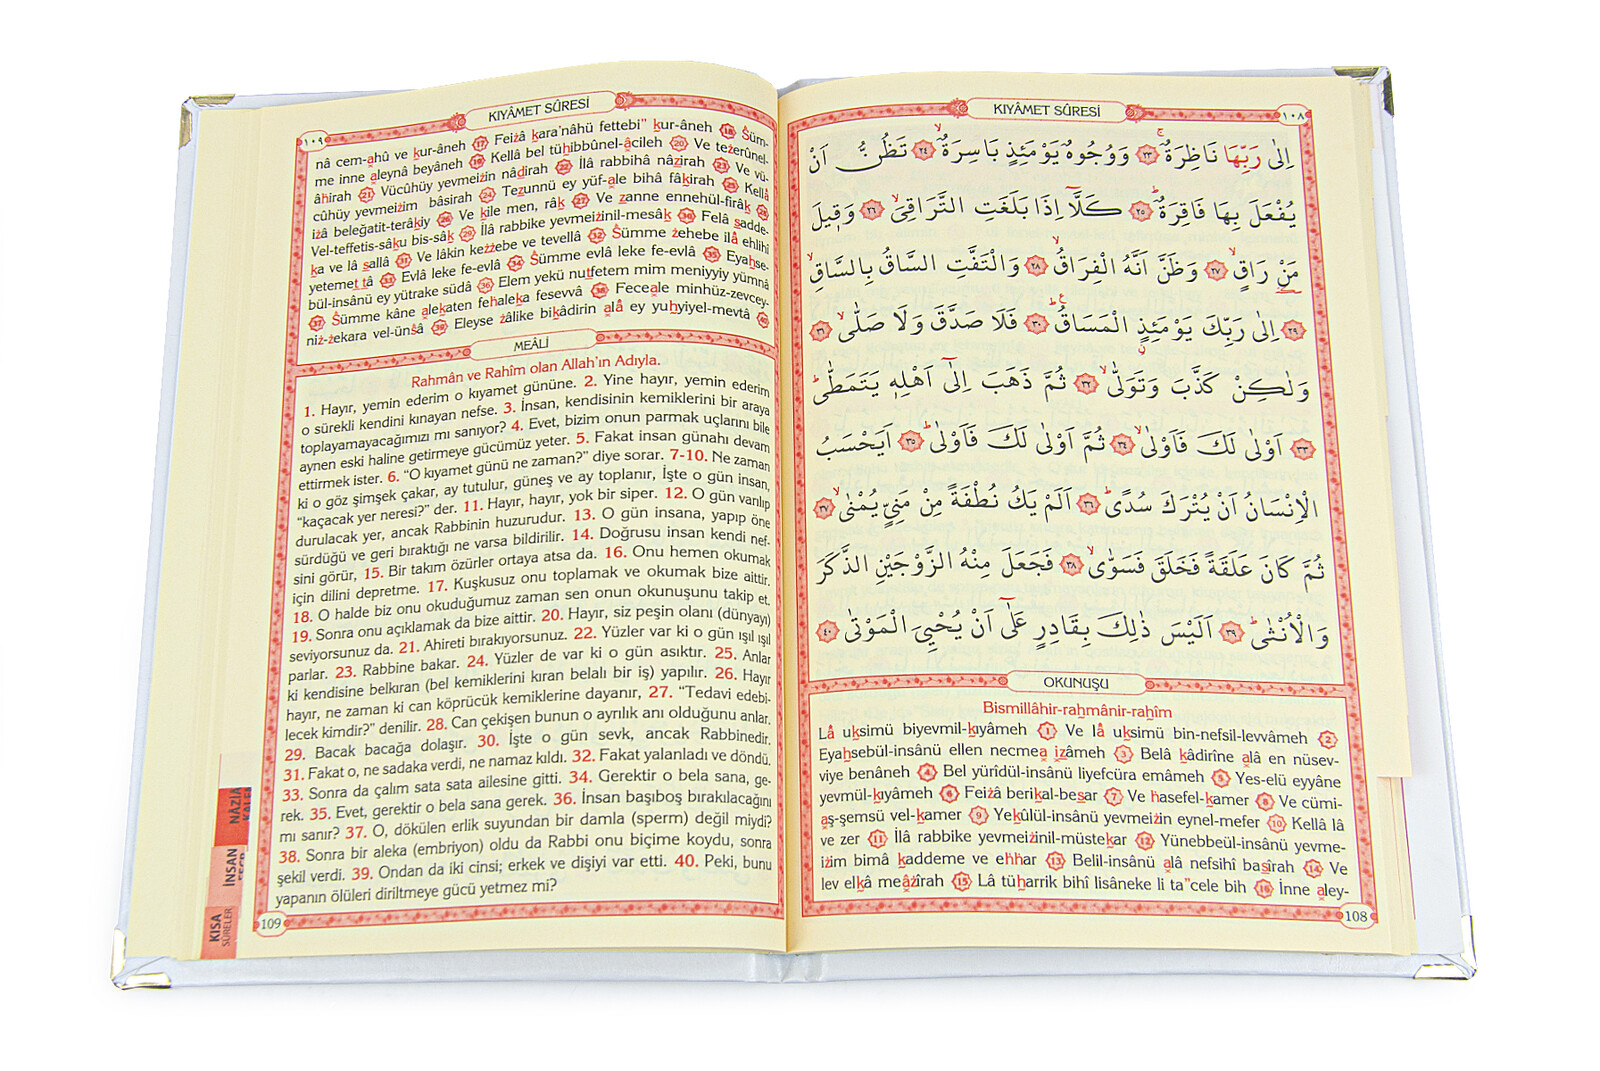 KIYÂMET SÛRESİ
١٠٨
اِلٰى رَبِّهَا نَاظِرَةٌۚ ﴿٢٣﴾ وَوُجُوهٌ يَوْمَئِذٍ بَاسِرَةٌۙ ﴿٢٤﴾ تَظُنُّ اَنْ
يُفْعَلَ بِهَا فَاقِرَةٌؕ ﴿٢٥﴾ كَلَّٓا اِذَا بَلَغَتِ التَّرَاقِيَۙ ﴿٢٦﴾ وَقٖيلَ
مَنْ رَاقٍۙ ﴿٢٧﴾ وَظَنَّ اَنَّهُ الْفِرَاقُۙ ﴿٢٨﴾ وَالْتَفَّتِ السَّاقُ بِالسَّاقِۙ
﴿٢٩﴾ اِلٰى رَبِّكَ يَوْمَئِذٍ الْمَسَاقُؕ ﴿٣٠﴾ فَلَا صَدَّقَ وَلَا صَلّٰىۙ ﴿٣١﴾
وَلٰكِنْ كَذَّبَ وَتَوَلّٰىۙ ﴿٣٢﴾ ثُمَّ ذَهَبَ اِلٰٓى اَهْلِهٖ يَتَمَطّٰىؕ
﴿٣٣﴾ اَوْلٰى لَكَ فَاَوْلٰىۙ ﴿٣٤﴾ ثُمَّ اَوْلٰى لَكَ فَاَوْلٰىؕ ﴿٣٥﴾ اَيَحْسَبُ
الْاِنْسَانُ اَنْ يُتْرَكَ سُدًىؕ ﴿٣٦﴾ اَلَمْ يَكُ نُطْفَةً مِنْ مَنِيٍّ يُمْنٰىۙ ﴿٣٧﴾
ثُمَّ كَانَ عَلَقَةً فَخَلَقَ فَسَوّٰىۙ ﴿٣٨﴾ فَجَعَلَ مِنْهُ الزَّوْجَيْنِ الذَّكَرَ
وَالْاُنْثٰىؕ ﴿٣٩﴾ اَلَيْسَ ذٰلِكَ بِقَادِرٍ عَلٰٓى اَنْ يُحْيِيَ الْمَوْتٰى ﴿٤٠﴾
OKUNUŞU
Bismillâhir-rahmânir-rahîm
Lâ uksimü biyevmil-kıyâmeh 1 Ve lâ uksimü bin-nefsil-levvâmeh 2
Eyahsebül-insânü ellen necmea ızâmeh 3 Belâ kâdirîne alâ en nüsev-
viye benâneh 4 Bel yürîdül-insânü liyefcüra emâmeh 5 Yes-elü eyyâne
yevmül-kıyâmeh 6 Feizâ berikal-besar 7 Ve hasefel-kamer 8 Ve cümi-
aş-şemsü vel-kamer 9 Yekûlül-insânü yevmeizin eynel-mefer 10 Kellâ lâ
ve zer 11 İlâ rabbike yevmeizinil-müstekar 12 Yünebbeül-insânü yevme-
izim bimâ kaddeme ve ehhar 13 Belil-insânü alâ nefsihî basîrah 14 Ve
lev elkâ meâzîrah 15 Lâ tüharrik bihî lisâneke li ta"cele bih 16 İnne aley-
108
KIYÂMET SÛRESİ
١٠٩
nâ cem-ahû ve kur-âneh 17 Feizâ kara'nâhü fettebi" kur-âneh 18 Süm-
me inne aleynâ beyâneh 19 Kellâ bel tühibbûnel-âcileh 20 Ve tezerûnel-
âhirah 21 Vücûhüy yevmeizin nâdirah 22 İlâ rabbihâ nâzirah 23 Ve vü-
cûhüy yevmeizim bâsirah 24 Tezunnü ey yüf-ale bihâ fâkirah 25 Kellâ
izâ beleğatit-terâkiy 26 Ve kile men, râk 27 Ve zanne ennehül-firâk 28
Vel-teffetis-sâku bis-sâk 29 İlâ rabbike yevmeizinil-mesâk 30 Felâ sadde-
ka ve lâ sallâ 31 Ve lâkin kezzebe ve tevellâ 32 Sümme zehebe ilâ ehlihî
yetemettâ 33 Evlâ leke fe-evlâ 34 Sümme evlâ leke fe-evlâ 35 Eyahse-
bül-insânü ey yütrake südâ 36 Elem yekü nutfetem mim meniyyiy yümnâ
37 Sümme kâne alekaten fehaleka fesevvâ 38 Feceale minhüz-zevcey-
niz-zekara vel-ünsâ 39 Eleyse zâlike bikâdirin alâ ey yuhyiyel-mevtâ 40
MEÂLİ
Rahmân ve Rahîm olan Allah'ın Adıyla.
1. Hayır, yemin ederim o kıyamet gününe. 2. Yine hayır, yemin ederim
o sürekli kendini kınayan nefse. 3. İnsan, kendisinin kemiklerini bir araya
toplayamayacağımızı mı sanıyor? 4. Evet, bizim onun parmak uçlarını bile
aynen eski haline getirmeye gücümüz yeter. 5. Fakat insan günahı devam
ettirmek ister. 6. "O kıyamet günü ne zaman?" diye sorar. 7-10. Ne zaman
ki o göz şimşek çakar, ay tutulur, güneş ve ay toplanır, İşte o gün insan,
"kaçacak yer neresi?" der. 11. Hayır, hayır, yok bir siper. 12. O gün varılıp
durulacak yer, ancak Rabbinin huzurudur. 13. O gün insana, yapıp öne
sürdüğü ve geri bıraktığı ne varsa bildirilir. 14. Doğrusu insan kendi nef-
sini görür, 15. Bir takım özürler ortaya atsa da. 16. Onu hemen okumak
için dilini depretme. 17. Kuşkusuz onu toplamak ve okumak bize aittir.
18. O halde biz onu okuduğumuz zaman sen onun okunuşunu takip et.
19. Sonra onu açıklamak da bize aittir. 20. Hayır, siz peşin olanı (dünyayı)
seviyorsunuz da. 21. Ahireti bırakıyorsunuz. 22. Yüzler var ki o gün ışıl ışıl
parlar. 23. Rabbine bakar. 24. Yüzler de var ki o gün asıktır. 25. Anlar
ki kendisine belkıran (bel kemiklerini kıran belalı bir iş) yapılır. 26. Hayır
hayır, ne zaman ki can köprücük kemiklerine dayanır, 27. "Tedavi edebi-
lecek kimdir?" denilir. 28. Can çekişen bunun o ayrılık anı olduğunu anlar.
29. Bacak bacağa dolaşır. 30. İşte o gün sevk, ancak Rabbinedir.
31. Fakat o, ne sadaka verdi, ne namaz kıldı. 32. Fakat yalanladı ve döndü.
33. Sonra da çalım sata sata ailesine gitti. 34. Gerektir o bela sana, ge-
rek. 35. Evet, gerektir o bela sana gerek. 36. İnsan başıboş bırakılacağını
mı sanır? 37. O, dökülen erlik suyundan bir damla (sperm) değil miydi?
38. Sonra bir aleka (embriyon) oldu da Rabbi onu biçime koydu, sonra
şekil verdi. 39. Ondan da iki cinsi; erkek ve dişiyi var etti. 40. Peki, bunu
yapanın ölüleri diriltmeye gücü yetmez mi?
109
NÂZİA
İNSAN
KISA
SÛRELER